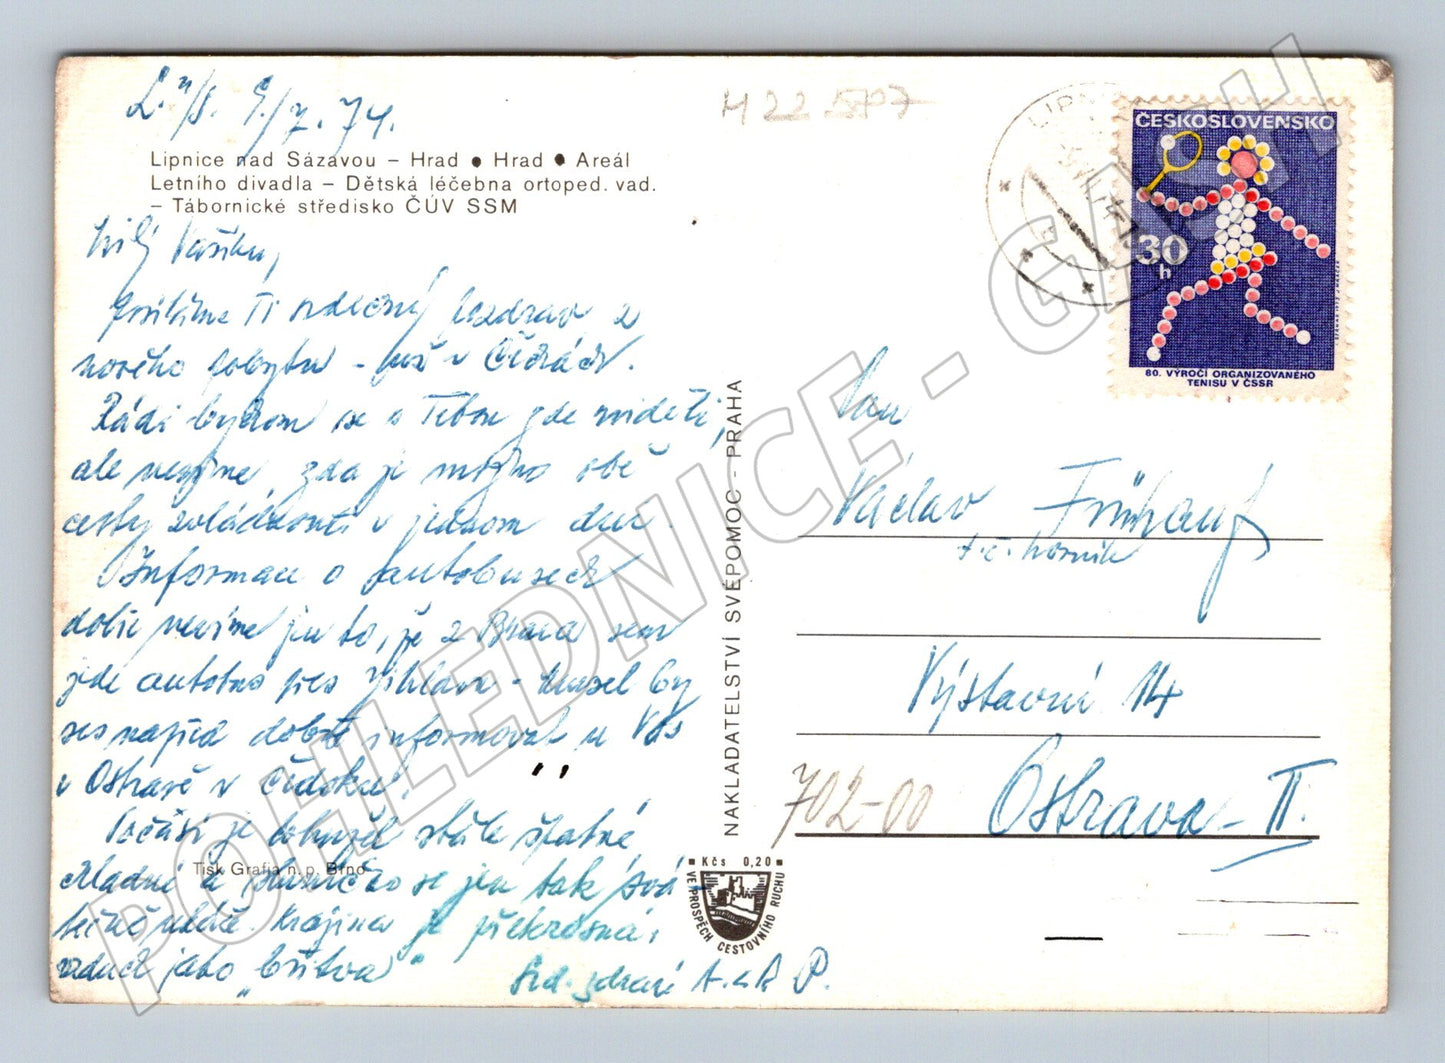 L. n/S. 9./7. 74.
M 22 5707
Lipnice nad Sázavou – Hrad ● Hrad ● Areál
Letního divadla – Dětská léčebna ortoped. vad.
– Tábornické středisko ČÚV SSM
Milý Vašíku,
posíláme Ti srdečný pozdrav z
nového pobytu - už v Čechách.
Rádi bychom se s Tebou zde viděli,
ale nevíme, zda je možno obě
cesty zvládnouti v jednom dnu.
Informace o autobusech
dosud nevíme jen to, že z Brna sem
jede autobus přes Jihlavu - musel by
ses napřed dobře informovat u Vás
v Ostravě v Čedoku!
Počasí je bohužel stále špatné
chladné a sluníčko se jen tak
ukáže. Krajina je překrásná,
vzduch jako „břitva“
Srd. zdraví A. a R P.
Tisk Grafia n. p. Brno
NAKLADATELSTVÍ SVÉPOMOC - PRAHA
Kčs 0,20
VE PROSPĚCH CESTOVNÍHO RUCHU
LIPN
ČESKOSLOVENSKO
30 h
80. VÝROČÍ ORGANIZOVANÉHO
TENISU V ČSSR
Pan
Václav Frühauf
t. č. horník
Výstavní 14
702-00 Ostrava - II.
POHLEDNICE - GASH